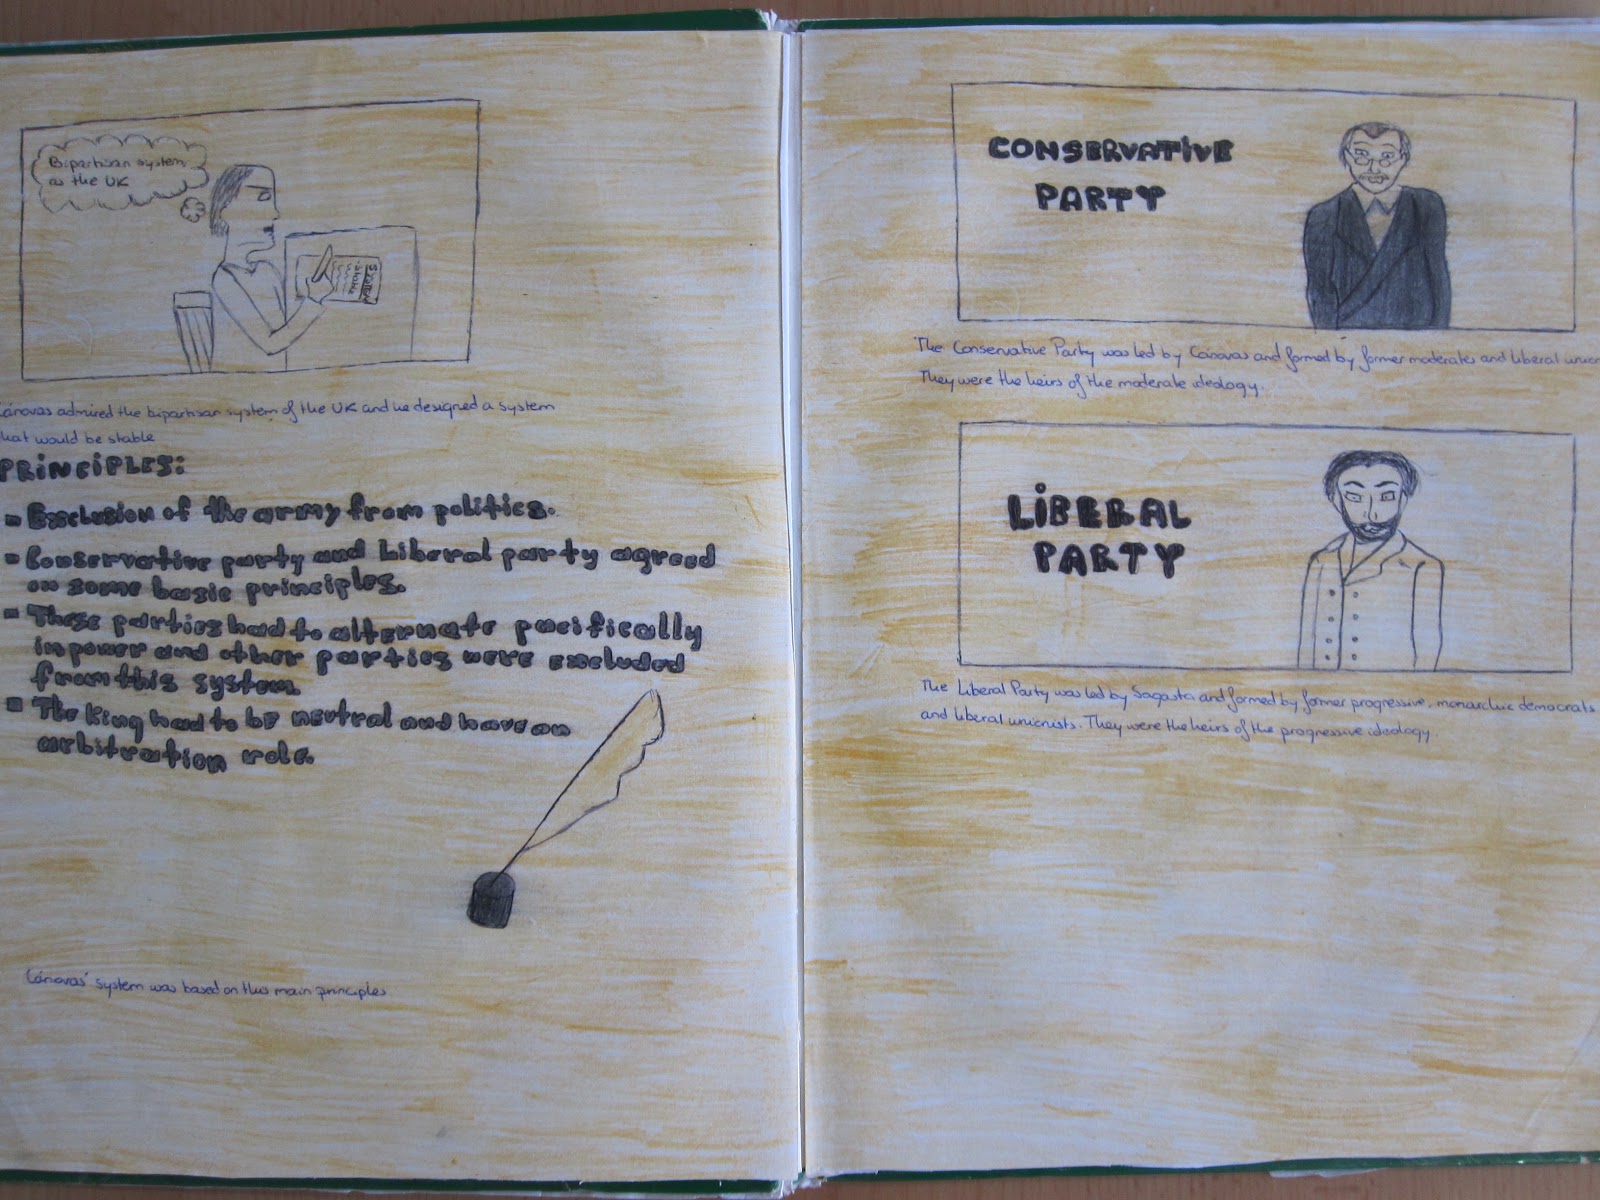 Bipartisan system
as the UK
System
stable
Cánovas admired the bipartisan system of the UK and he designed a system
that would be stable
PRINCIPLES:
- Exclusion of the army from politics.
- Conservative party and Liberal party agreed
on some basic principles.
- These parties had to alternate pacifically
in power and other parties were excluded
from this system.
- The King had to be neutral and have an
arbitration role.
Cánovas' system was based on this main principles
CONSERVATIVE
PARTY
The Conservative Party was led by Cánovas and formed by former moderates and liberal unio
They were the heirs of the moderate ideology.
LIBERAL
PARTY
The Liberal Party was led by Sagasta and formed by former progressive, monarchic democrats
and liberal unionists. They were the heirs of the progressive ideology